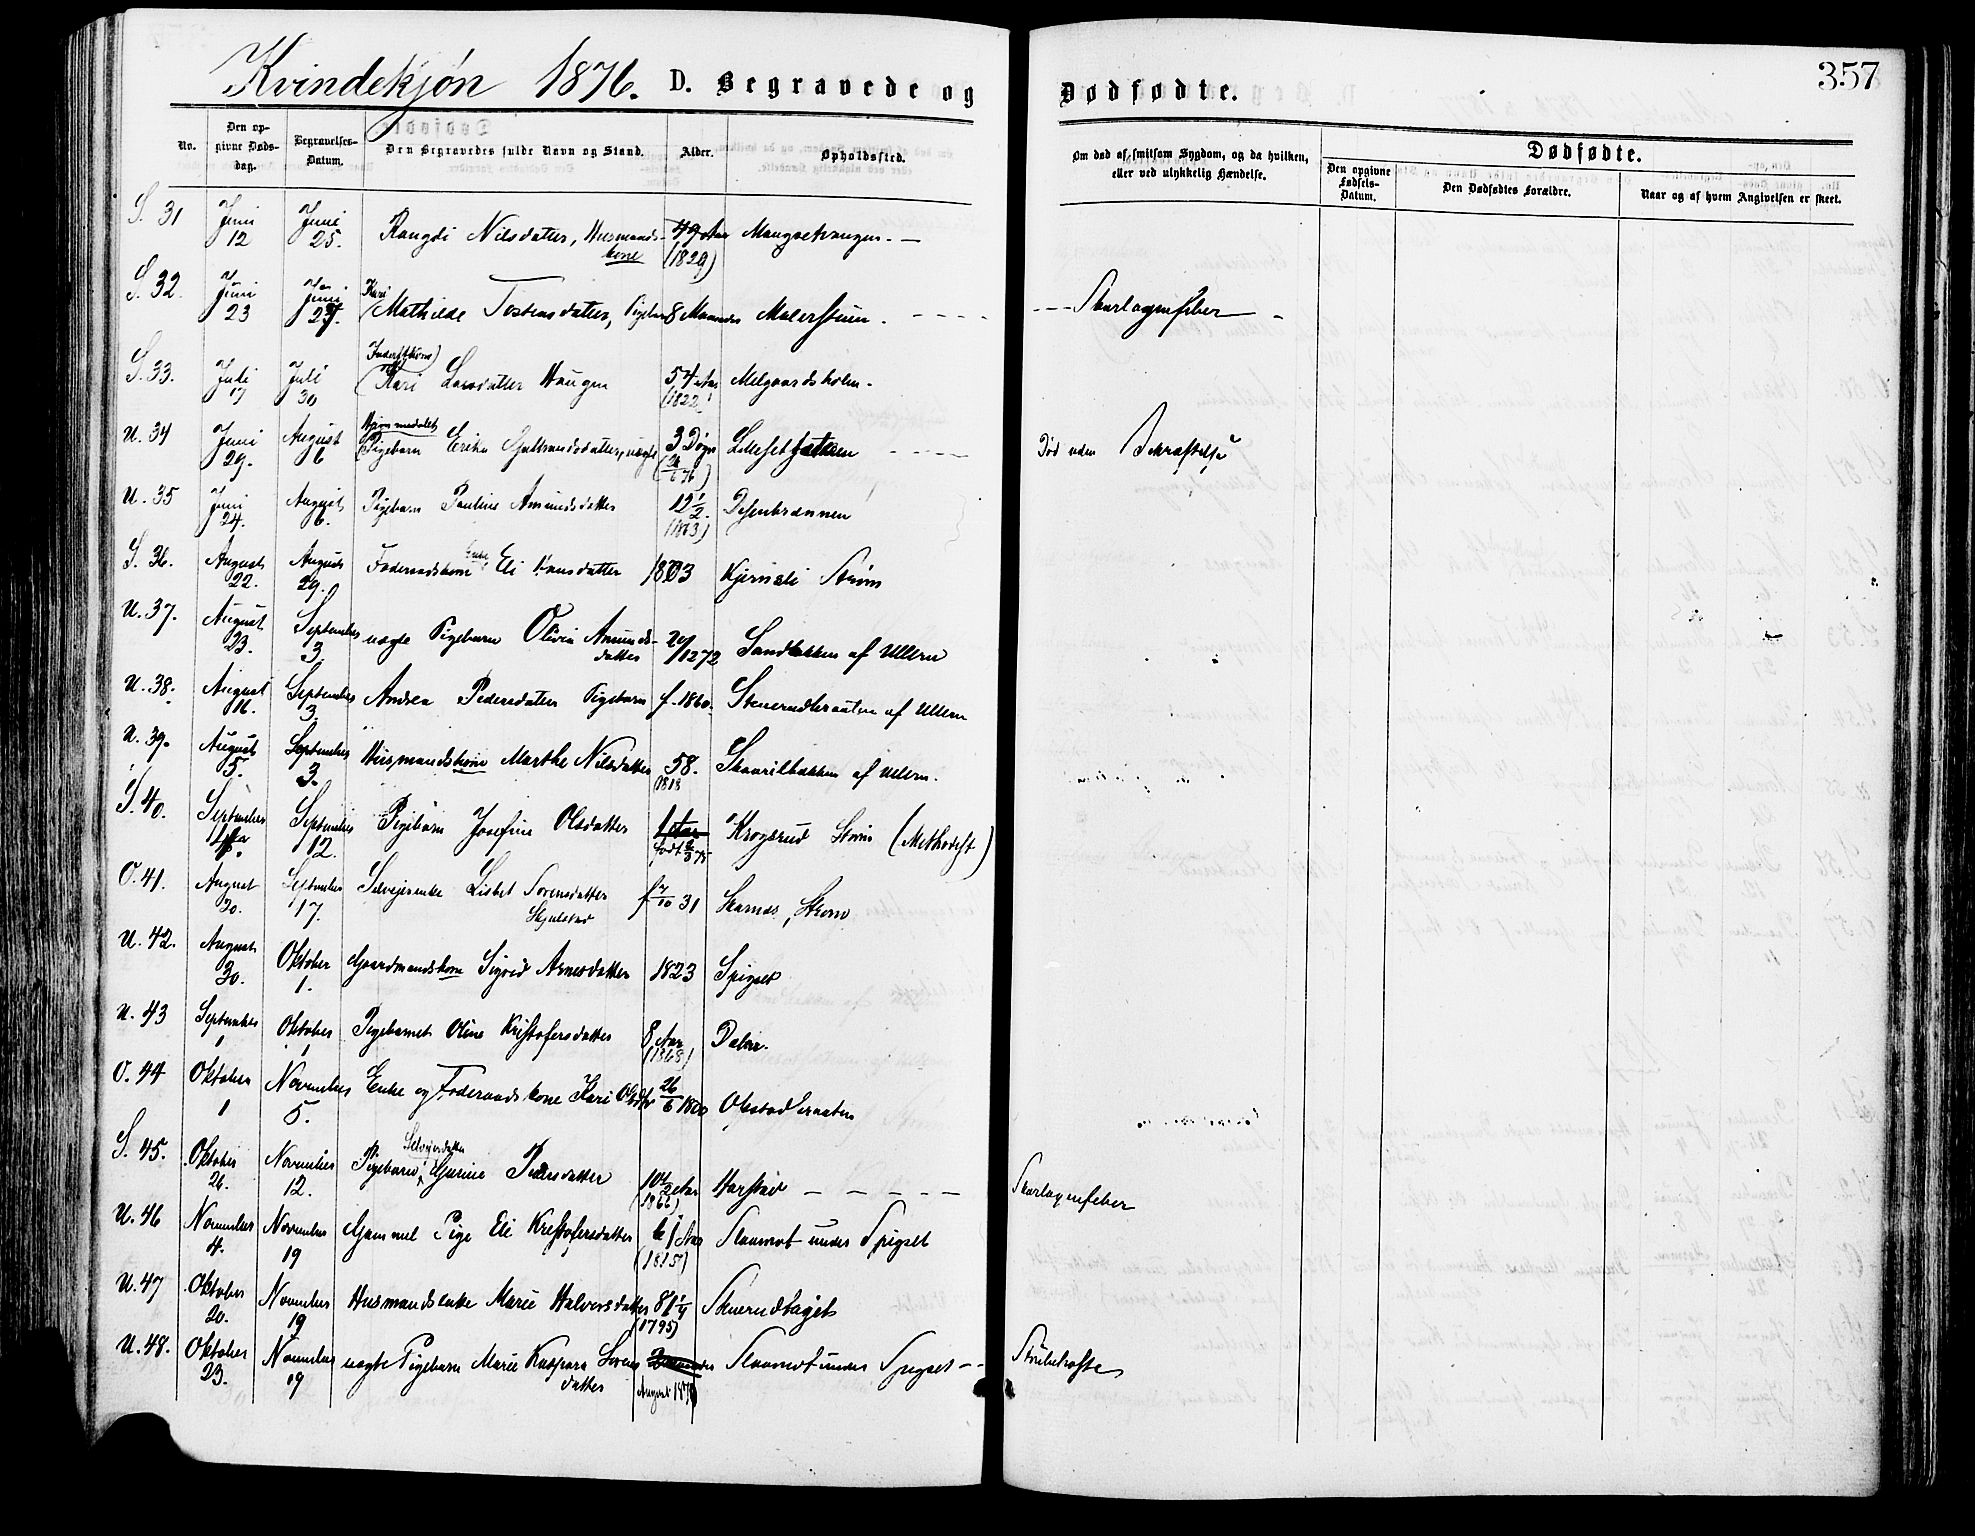 Kvindekjøn 1876. D. Begravede og Dødfødte. 357
No. Den opgivne Dødsdag. Begravelses-Datum. Den Begravedes fulde Navn og Stand. Alder. Opholdssted. Om død af smitsom Sygdom, og da hvilken, eller ved ulykkelig Hændelse. Dødfødte. Den opgivne Fødsels-Datum. Den Dødfødtes Forældre. Naar og af hvem Angivelsen er skeet.
S. 31 Juni 12 Juni 25. Rangdi Nilsdatter, Husmandskone 49 Aar (1829)
S. 32. Juni 23 Juni Kari Mathilde Tostensdatter, 8 Maaneder Skarlagensfeber
S. 33. Juli 17 Juli 30 Kari Larsdatter Haugen 54 Aar (1822) Melgaardsholm
U. 34 Juni 29. August 6 Hjemmedøbt Pigebarn Guldbrandsdatter, uægte 3 Døgn Død uden Bekræftelse
U. 35 Juni 24. August 6. Pigebarn Pauline Amundsdatter 12½. (1863)
S. 36. August 22. August 29. Enke Eli Hansdatter 1803 Kjernsli Strøm
U. 37. August 23. September 3 uægte Pigebarn Olivia Amundsdatter Sandbakken af Ullern
U. 38. August 16. September 3. Andrea Pedersdatter Pigebarn f. 1860. Stenerudbraaten af Ullern
U. 39. August 5. September 3. Husmandskone Marthe Nilsdatter 58. 1818 af Ullern.
S. 40. September September 12. Pigebarn Josefine Olsdatter 1 Aar Krogsrud Strøm (Methodist)
O. 41. August 20. September 17. Selveierenke Lisbet Sorensdatter Skjulstad f 7/10 31 Skarnes, Strøm
U. 42. August 30. Oktober 1. Gaardmandskone Sigrid Arnesdatter 1823 Spigset
U. 43 September 1 Oktober 1 Pigebarnet Oline Kristofersdatter 8 Aar (1868)
O. 44 Oktober 1 November 5. Enke og Føderaadskone Kari Olsdtr 26/6 1800 Olstadbraaten
S. 45. Oktober 26. November 12. Pigebarn, Selveierdatter Gurine Pedersdatter 10½ Aar (1866) Harstad Skarlagensfeber
U. 46 November 4. November 19 Gammel Pige Eli Kristofersdatter 61 Aar (1815) Slaamot under Spigset
U. 47 Oktober 20. November 19 Husmandsenke Marie Halvorsdatter 81¼ (1795)
U. 48. Oktober 23. November 19 uægte Pigebarn Marie Kaspara datter August 1876 Slaamot under Spigset Strubehoste